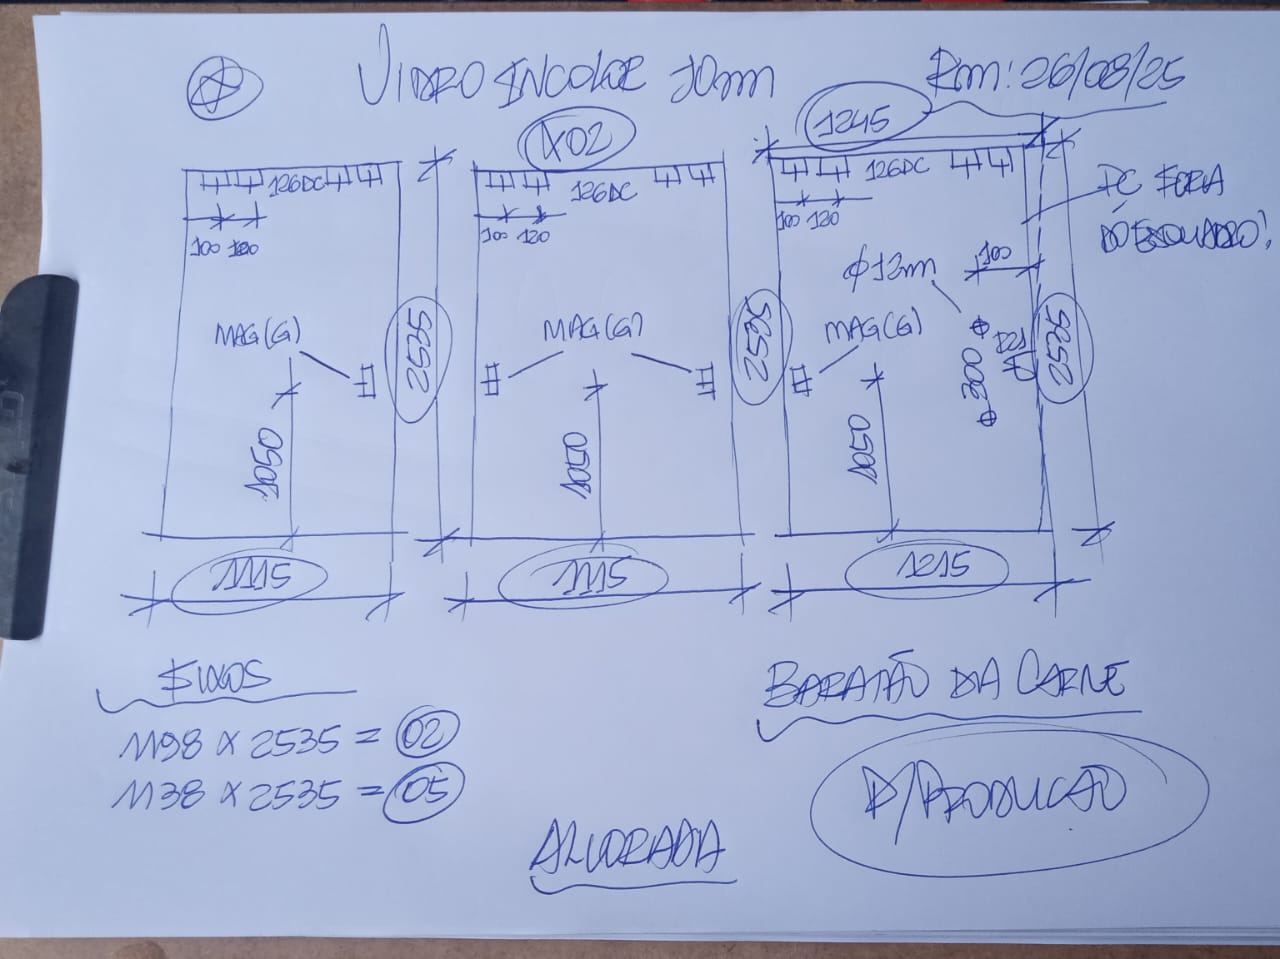 VIDRO INCOLOR 10mm
Rm: 26/08/25
X02
1245
126DC
126DC
126DC
PÇ FORA
DO ESQUADRO!
100 120
100 120
100 120
100
Φ12mm
MAG(G)
MAG(G)
MAG(G)
2535
2535
2535
300
1050
1050
1050
1115
1115
1215
FIXOS
1198 X 2535 = 02
1138 X 2535 = 05
BARATÃO DA CARNE
P/PRODUÇÃO
ALVORADA